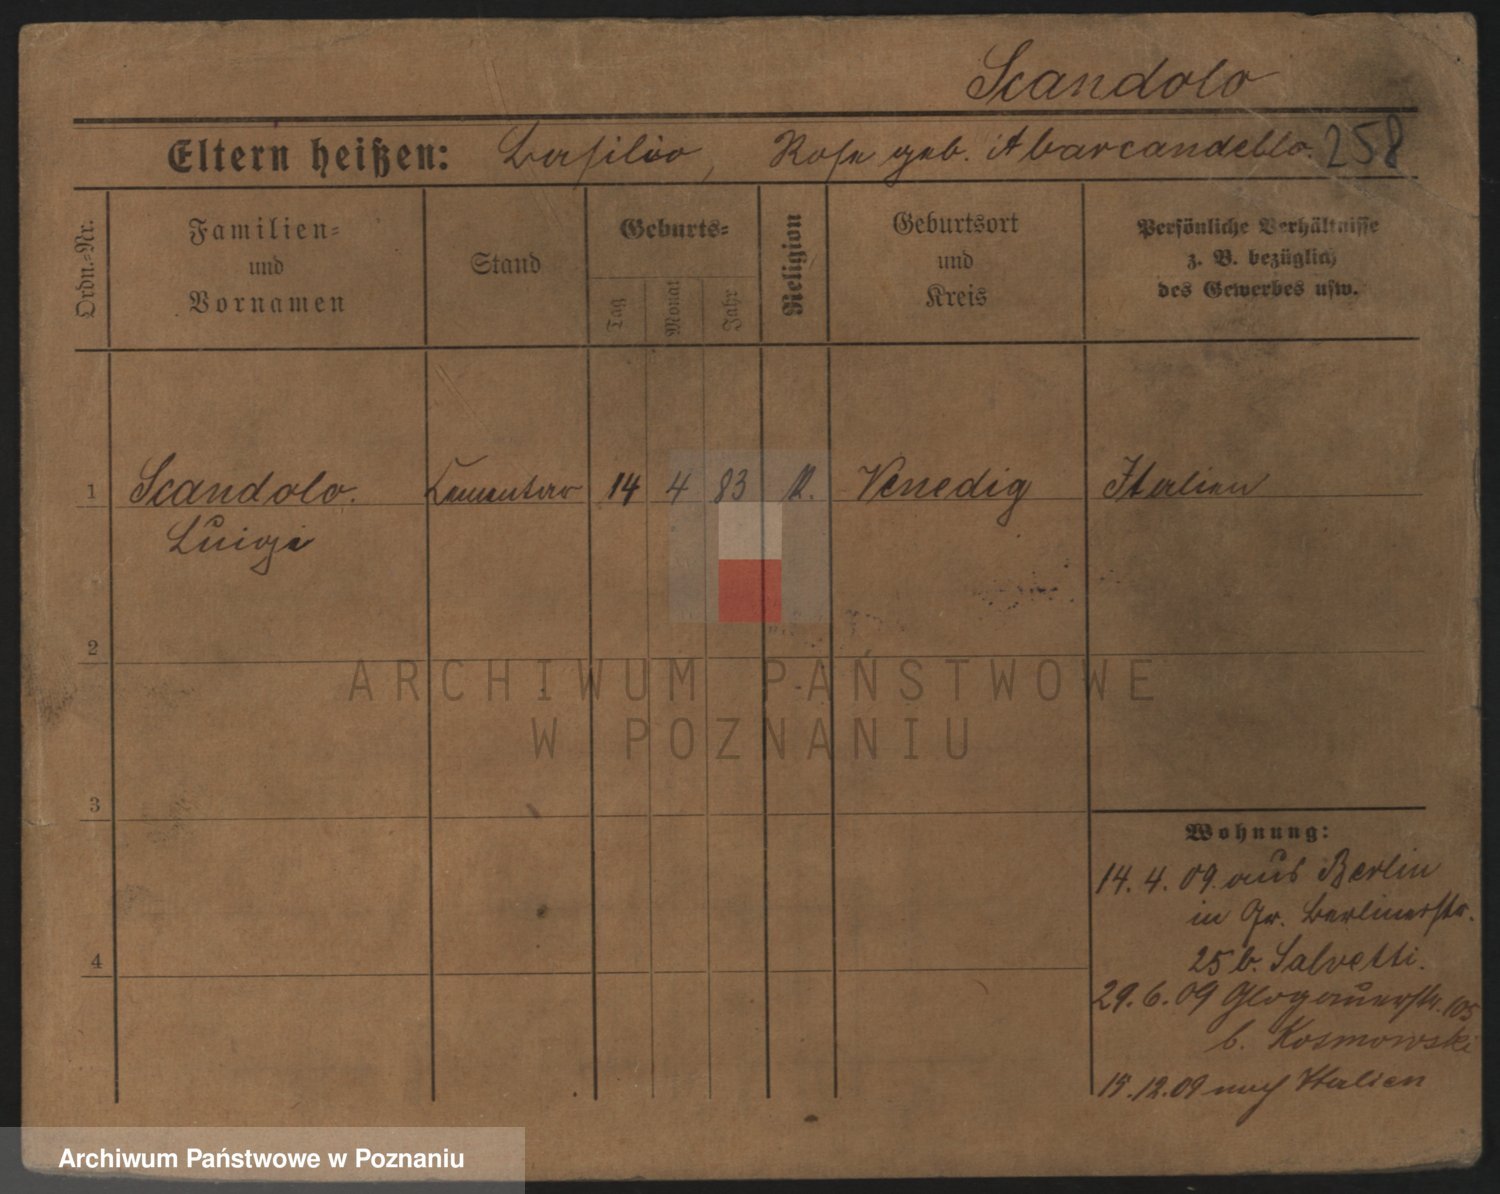 Scandolo
Eltern heißen: Basilio, Rosa geb. Abarcandello. 258
Ordn.-Nr.
Familien-
und
Vornamen
Stand
Geburts-
Tag
Monat
Jahr
Religion
Geburtsort
und
Kreis
Persönliche Verhältnisse
z. B. bezüglich
des Gewerbes usw.
1 Scandolo. 14 4 83 K. Venedig Italien
Luigi
2
3
4
Wohnung:
14. 4. 09. aus Berlin
in Gr. Berlinerstr.
25 b. Salvetti.
29. 6. 09 Glogauerstr. 105
b. Kosmowski
15. 12. 09 nach Italien
ARCHIWUM PAŃSTWOWE
W POZNANIU
Archiwum Państwowe w Poznaniu